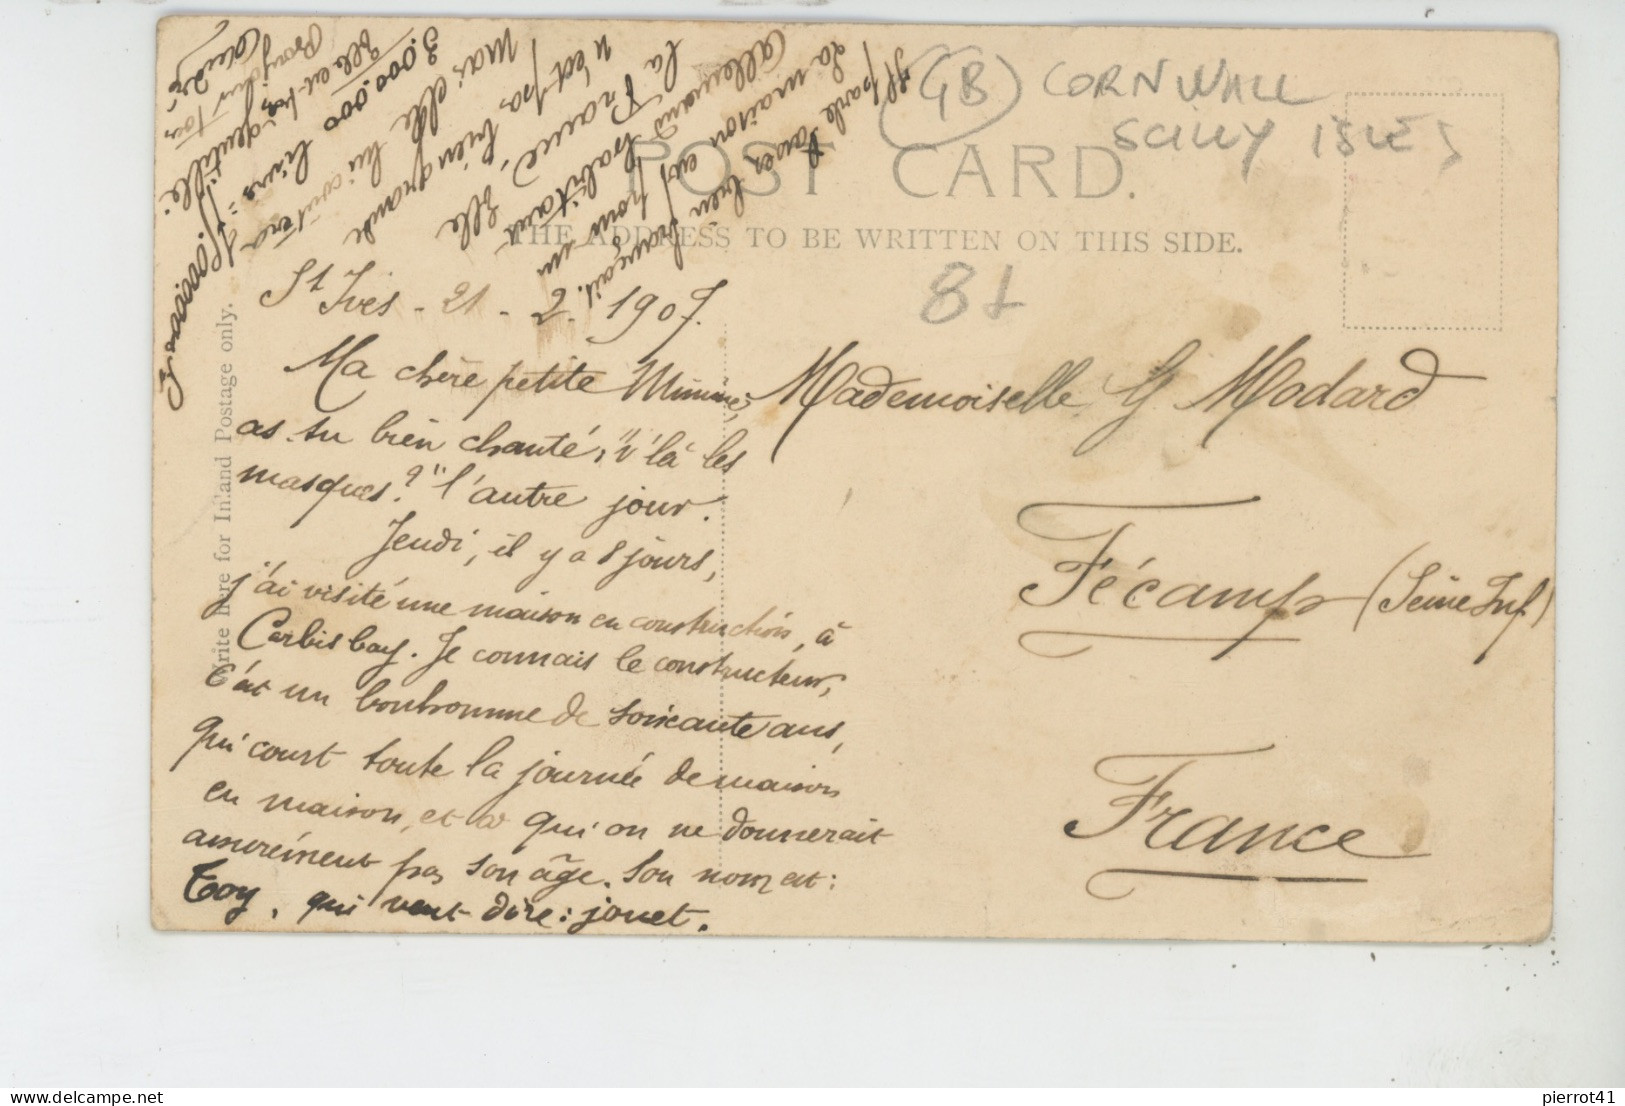 (GB) CORNWALL
SCILLY ISLES
POST CARD.
THE ADDRESS TO BE WRITTEN ON THIS SIDE.
81
Write here for Inland Postage only.
St Ives - 21 - 2 - 1907.
Ma chère petite Mimine,
as-tu bien chanté, "v'là les
masques?" l'autre jour.
Jeudi, il y a 8 jours,
j'ai visité une maison en construction, à
Carbis bay. Je connais le constructeur,
C'est un bonhomme de soixante ans,
qui court toute la journée de maison
en maison, et à qui on ne donnerait
assurément pas son âge. Son nom est:
Toy, qui veut dire: jouet.
Il parle assez bien français.
La maison est pour un
Allemand habitant
la France. Elle
n'est pas bien grande
mais elle lui coûtera
3.000.000 livres =
Elle est très gentille.
Mademoiselle G. Modard
Fécamp (Seine Inf.)
France
pierrot41